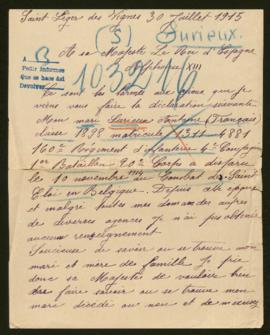 Saint Léger des Vignes 30 Juillet 1915
(S) Durieux.
A sa Majesté Le Roi d'Espagne
Alphonse XIII
A
Pedir informes
que se hace Así
Devolver
103216
les larmes aux yeux que je
viens vous faire la déclaration suivante
Mon mari Durieux Antoine (Français)
classe 1898 matricule 1311 4881
160e Régiment d'infanterie 4e Compagnie
1er Bataillon 20e Corps a disparu
le 10 novembre 1914 au Combat de Saint
Eloi en Belgique. Depuis cette époque
et malgré toutes mes demandes auprès
de diverses agences je n'ai pu obtenir
aucun renseignement
Soucieuse de savoir où se trouve mon
mari et mère de famille je prie
donc sa Majesté de vouloir bien
faire savoir où se trouve mon
mari décédé ou non et de